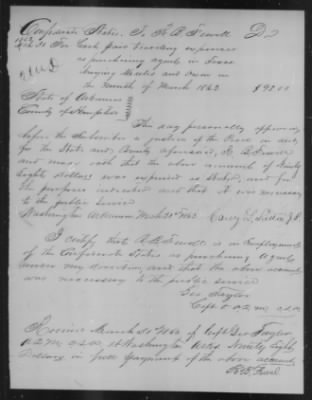 Confederate States. To A. B. Fewell Dr
1863
Mch 31 For Cash paid traveling expenses
as purchasing agent in Texas
buying Mules and Oxen in
the month of March 1863 $98.00
State of Arkansas
County of Hempstead
This day personally appeared
before the Subscriber a Justice of the Peace in and
for the State and County aforesaid, A. B. Fewell
and made oath that the above amount of Ninety
Eight dollars was expended as Stated, and for
the purposes indicated and that it was necessary
to the public service
Washington Arkansas March 31st 1863. J.P.
I certify that A. B. Fewell is in Employment
of the Confederate States as purchasing Agent
under my direction, and that the above account
was necessary to the public service
Geo Taylor
Capt & A.Q.M. C.S.A.
Received March 31st 1863 of Capt Geo Taylor
A.Q.M. C.S.A. at Washington Arks. Ninety Eight
Dollars in full payment of the above account.